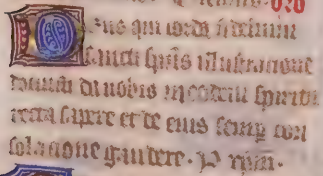 Deus qui corda fidelium
sancti spūs illustracione
docuisti da nobis in eodem spiritu
recta sapere et de eius semp con
solacione gaudere. P xpm.